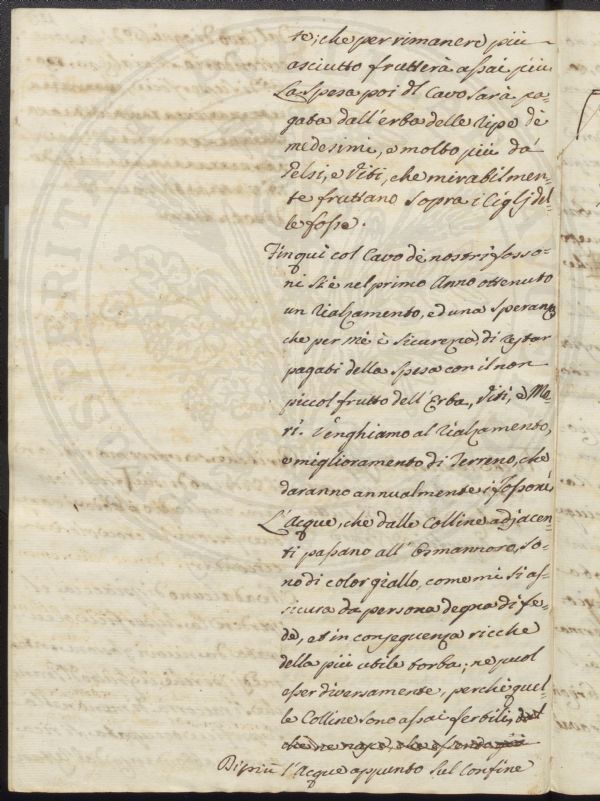 te; che per rimanere più
asciutto frutterà assai più
La spesa poi dl Cavo sarà pa-
gata dall'erba delle Ripe de
medesimi, e molto più da
Gelsi, e Viti, che mirabilmen-
te fruttano sopra i Ciglj del-
le fosse.
Fin quì col Cavo de nostri fosso-
ni si è nel primo Anno ottenuto
un Rialzamento, ed una speranza
che per mè è sicurezza, di restar
pagati della spesa con il non
piccol frutto dell'Erba, Viti, e Mo-
ri. Venghiamo al Rialzamento,
e miglioramento di Terreno, che
daranno annualmente i fossoni
L'Acque, che dalle Colline adjacen-
ti passano all'Osmannoro, so-
no di color giallo, come mi si as-
sicura da persona degna di fe-
de, et in conseguenza ricche
della più utile torba; ne puol
esser diversamente, perche quel-
le Colline sono assai fertili,
che ne nasce, che essendo più
Di più l'Acque appunto sul confine